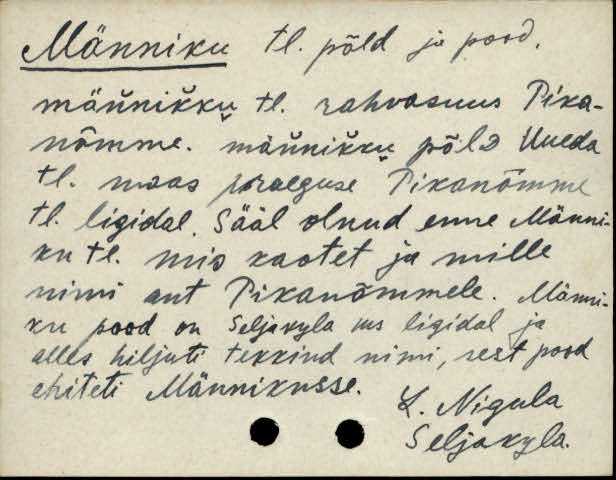 Männiku tl. põld ja pood.
männikku tl. rahvasuus Pika-
nõmme. männikku põld Uueda
tl. maas praeguse Pikanõmme
tl. ligidal. Sääl olnud enne Männi-
ku tl. mis kaotet ja mille
nimi ant Pikanõmmele. Männi-
ku pood on Seljakyla ms ligidal ja
alles hiljuti tekkind nimi, sest pood
ehiteti Männikusse.
L. Nigula
Seljakyla.